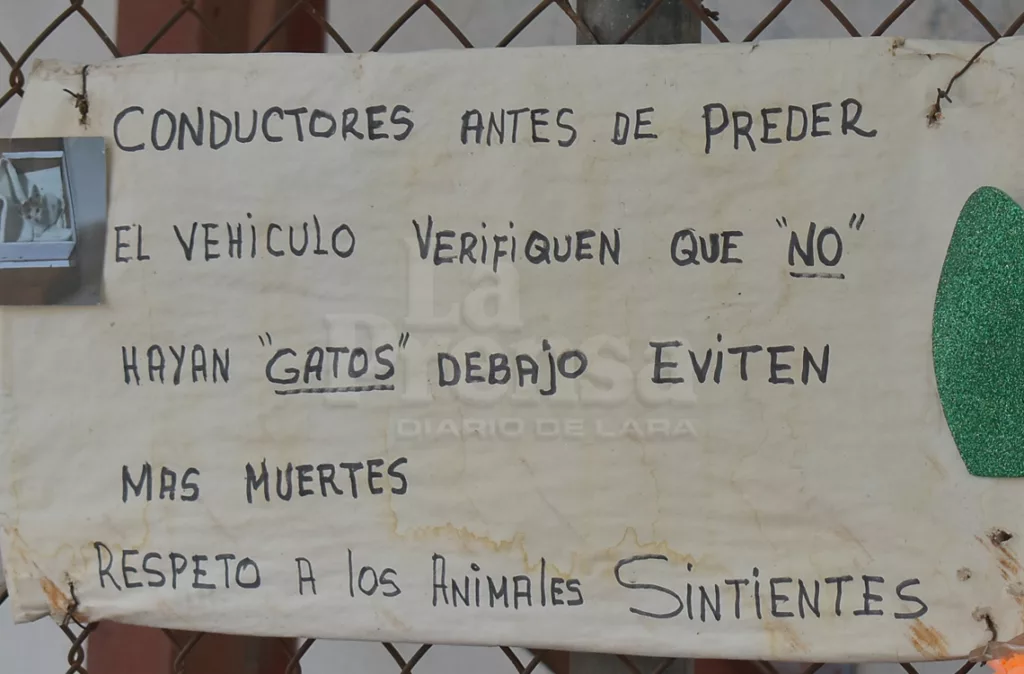 CONDUCTORES ANTES DE PREDER
EL VEHICULO VERIFIQUEN QUE "NO"
HAYAN "GATOS" DEBAJO EVITEN
MAS MUERTES
RESPETO A los ANIMAlES SINTIENTES
La
Prensa
DIARIO DE LARA